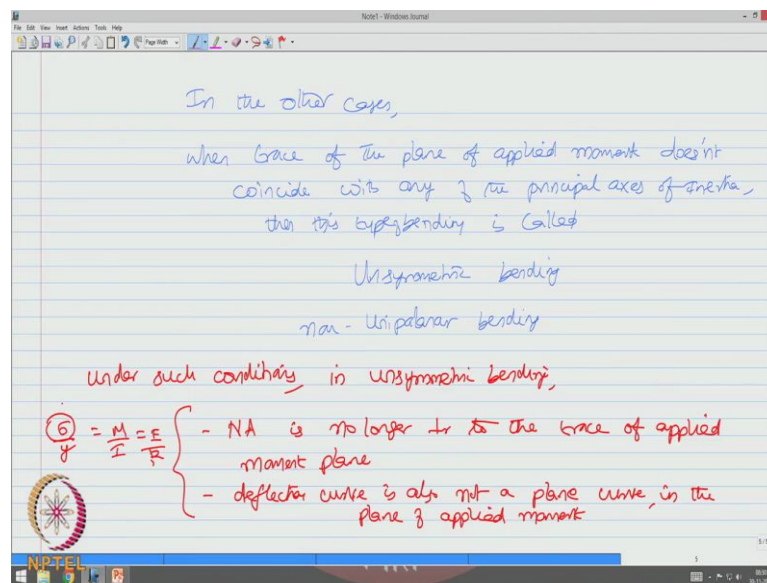 Note1 - Windows Journal
File Edit View Insert Actions Tools Help
Page Width
In the other cases,
when trace of the plane of applied moment doesn't
coincide with any of the principal axes of inertia,
then this type of bending is called
Unsymmetric bending
non - Uniplanar bending
under such conditions, in unsymmetric bending,
σ/y = M/I = E/R { - NA is no longer ⊥r to the trace of applied
moment plane
- deflection curve is also not a plane curve, in the
plane of applied moment
NPTEL
5